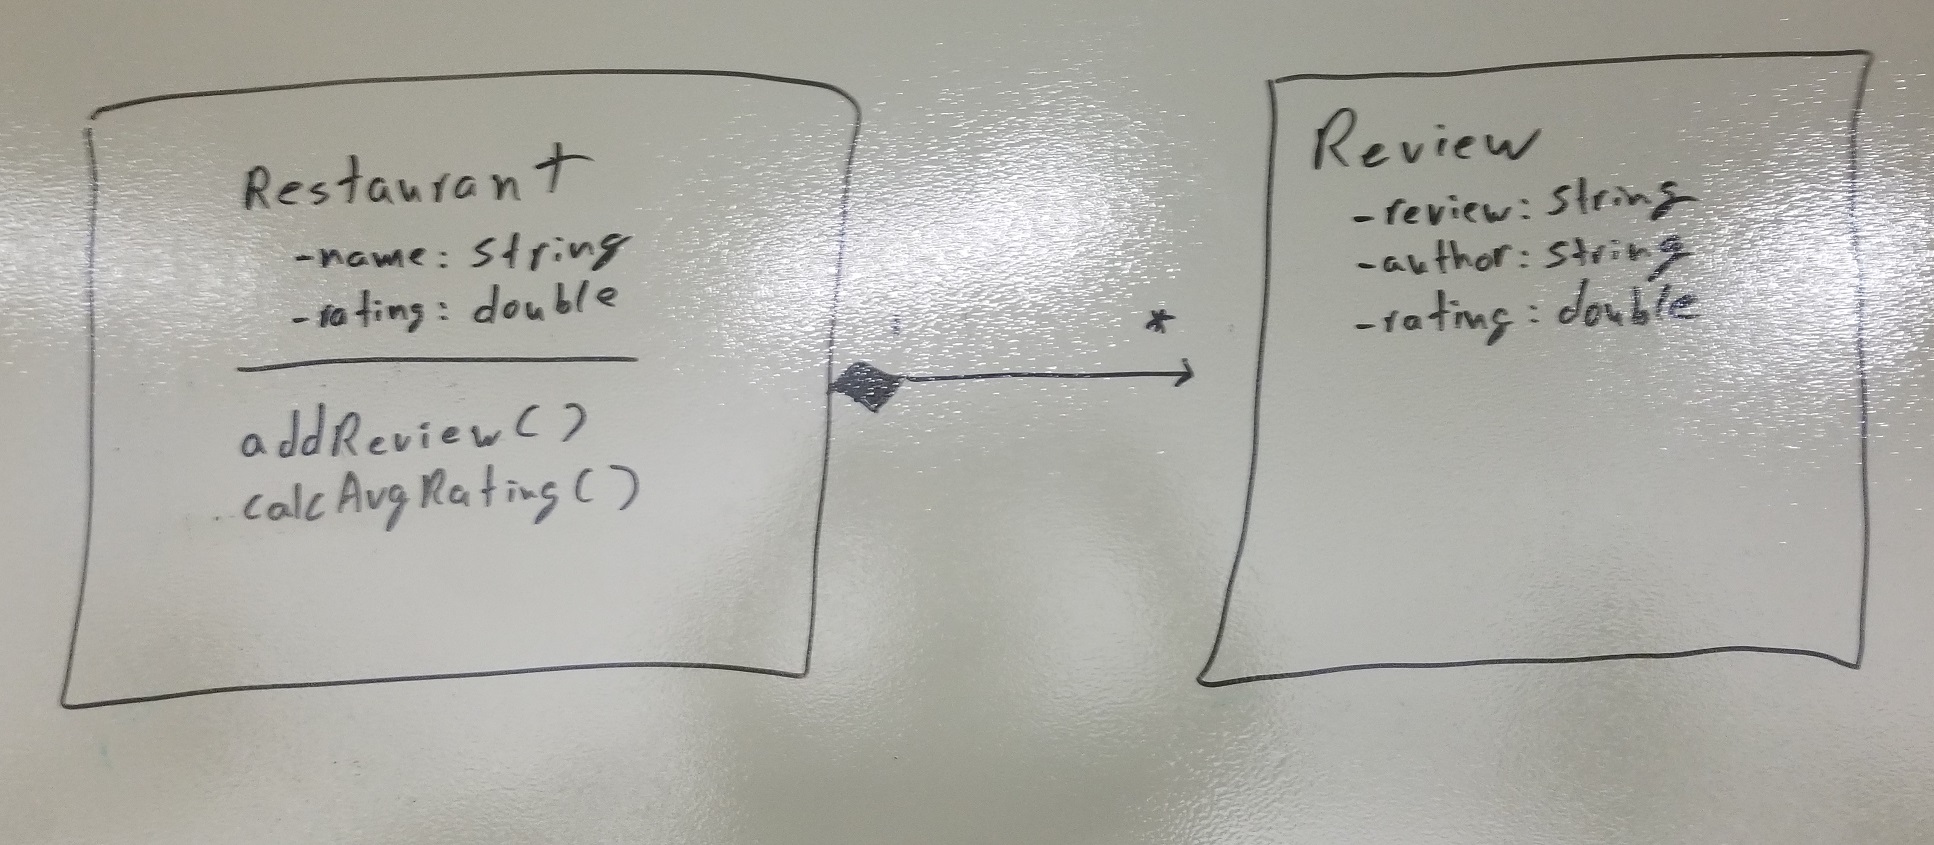 Restaurant
-name: string
-rating: double
addReview()
calcAvgRating()
*
Review
-review: string
-author: string
-rating: double